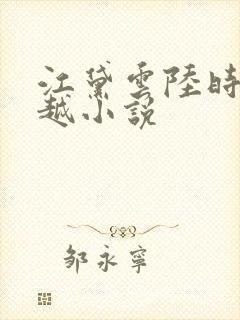 江黛雲陸時
越小說
鄒永寧